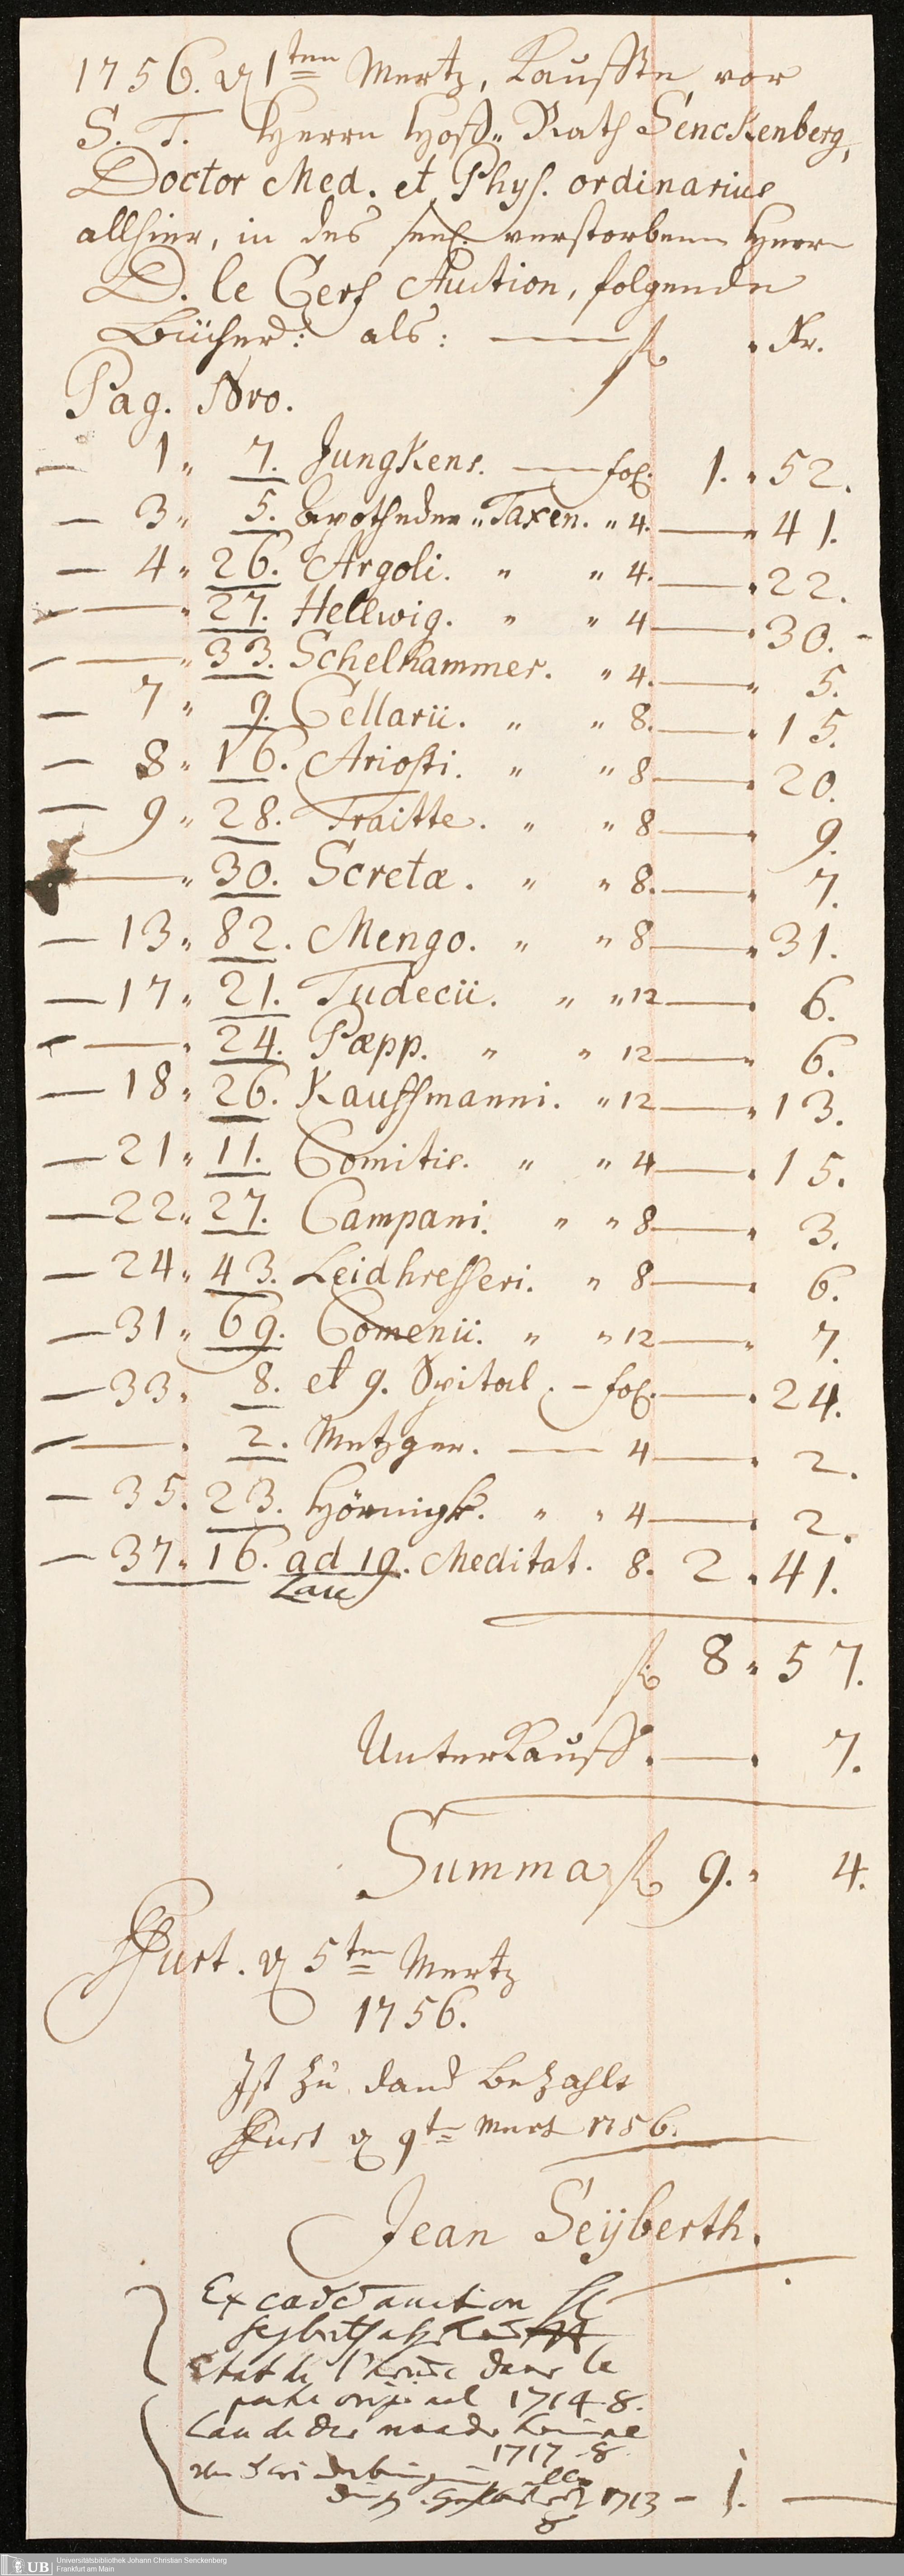 1756. d 1ten Mertz, Kauffte vor
S. T. Herrn Hoff„ Rath Senckenberg,
Doctor Med. et Phys. ordinarius
allhier, in des seel. verstorbenen Herrn
D. le Cerf Auction, folgende
Bücher: als: — fl „ Kr.
Pag. Nro.
— 1„ 7. Jungkens. — fol. 1. „ 52.
— 3„ 5. Apothecker„ Taxen. „ 4. — „ 41.
— 4„ 26. Argoli. „ „ 4. — „ 22.
— — „ 27. Hellwig. „ „ 4 — „ 30. -
— — „ 33. Schelhammer. „ 4. — „ 5.
— 7„ 9. Cellarii. „ „ 8. — „ 15.
— 8„ 16. Ariosti. „ „ 8 — „ 20.
— 9„ 28. Traitte. „ „ 8 — „ 9.
— „ 30. Scretæ. „ „ 8. — „ 7.
— 13„ 82. Mengo. „ „ 8 — „ 31.
— 17„ 21. Tudecii. „ „ 12 — „ 6.
— — „ 24. Pæpp. „ „ 12 — „ 6.
— 18„ 26. Kauffmanni. „ 12 — „ 13.
— 21„ 11. Comitis. „ „ 4 — „ 15.
— 22„ 27. Campani. „ „ 8 — „ 3.
— 24„ 43. Leidhresseri. „ 8 — „ 6.
— 31„ 69. Comenii. „ „ 12 — „ 7.
— 33„ 8. et 9. Spital. - fol. — „ 24.
— — „ 2. Metzger. — 4 — „ 2.
— 35. 23. Hörnigk. „ „ 4 — „ 2.
— 37„ 16. ad 19. Meditat. 8. 2 „ 41.
Lau
fl 8 „ 57.
Unterkauff. — „ 7.
Summa fl 9. „ 4.
Ffurt. d 5ten Mertz
1756.
Ist zu danck bezahlt
Ffurt d 9te Mertz 1756.
Jean Seÿberth.
Ex auction
Etat de l' dans le
original 1714. 8.
Lau de
1717 8
1713 - 1. —
8
UB Universitätsbibliothek Johann Christian Senckenberg
Frankfurt am Main